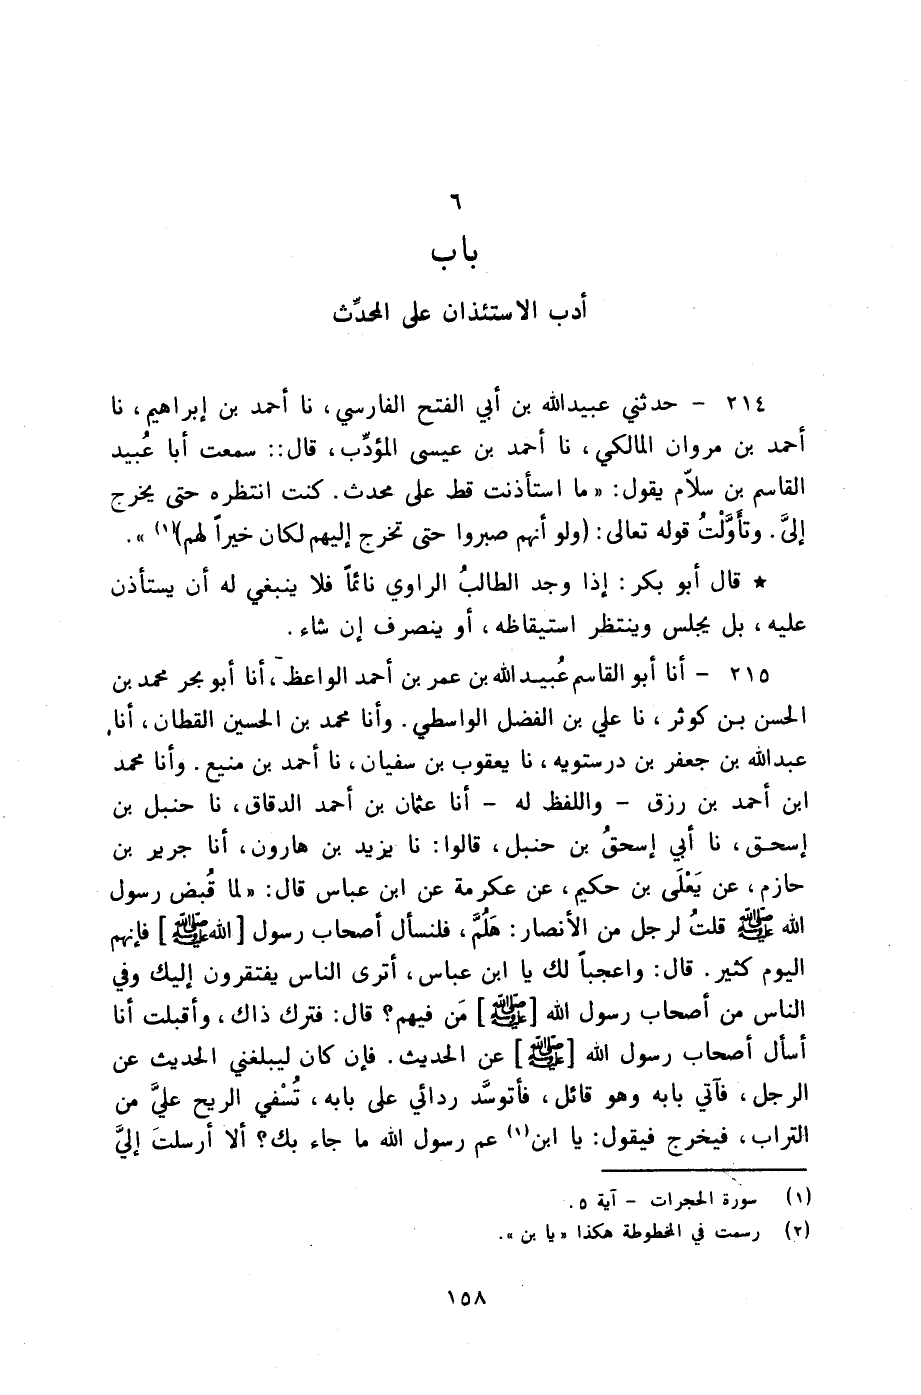 ٦
باب
أدب الاستئذان على المحدِّث
٢١٤ - حدثني عبيدالله بن أبي الفتح الفارسي، نا أحمد بن إبراهيم، نا
أحمد بن مروان المالكي، نا أحمد بن عيسى المؤدِّب، قال:: سمعت أبا عُبيد
القاسم بن سلاّم يقول: «ما استأذنت قط على محدث. كنت انتظره حتى يخرج
إليَّ. وتأَوَّلْتُ قوله تعالى: (ولو أنهم صبروا حتى تخرج إليهم لكان خيراً لهم)(١)».
★ قال أبو بكر: إذا وجد الطالبُ الراوي نائماً فلا ينبغي له أن يستأذن
عليه، بل يجلس وينتظر استيقاظه، أو ينصرف إن شاء.
٢١٥ - أنا أبو القاسم عُبيدالله بن عمر بن أحمد الواعظ، أنا أبو بحر محمد بن
الحسن بن كوثر، نا علي بن الفضل الواسطي. وأنا محمد بن الحسين القطان، أنا
عبدالله بن جعفر بن درستويه، نا يعقوب بن سفيان، نا أحمد بن منيع. وأنا محمد
ابن أحمد بن رزق - واللفظ له - أنا عثمان بن أحمد الدقاق، نا حنبل بن
إسحق، نا أبي إسحقُ بن حنبل، قالوا: نا يزيد بن هارون، أنا جرير بن
حازم، عن يَعْلَى بن حكيم، عن عكرمة عن ابن عباس قال: «لما قُبض رسول
الله ﷺ قلتُ لرجل من الأنصار: هَلُمَّ، فلنسأل أصحاب رسول [الله ﷺ] فإنهم
اليوم كثير. قال: واعجباً لك يا ابن عباس، أترى الناس يفتقرون إليك وفي
الناس من أصحاب رسول الله [ﷺ] مَن فيهم؟ قال: فترك ذاك، وأقبلت أنا
أسأل أصحاب رسول الله [ﷺ] عن الحديث. فإن كان ليبلغني الحديث عن
الرجل، فآتي بابه وهو قائل، فأتوسَّد ردائي على بابه، تُسْفي الريح عليَّ من
التراب، فيخرج فيقول: يا ابن(١) عم رسول الله ما جاء بك؟ ألا أرسلتَ إليَّ
(١) سورة الحجرات - آية ٥.
(٢) رسمت في المخطوطة هكذا «يا بن».
١٥٨